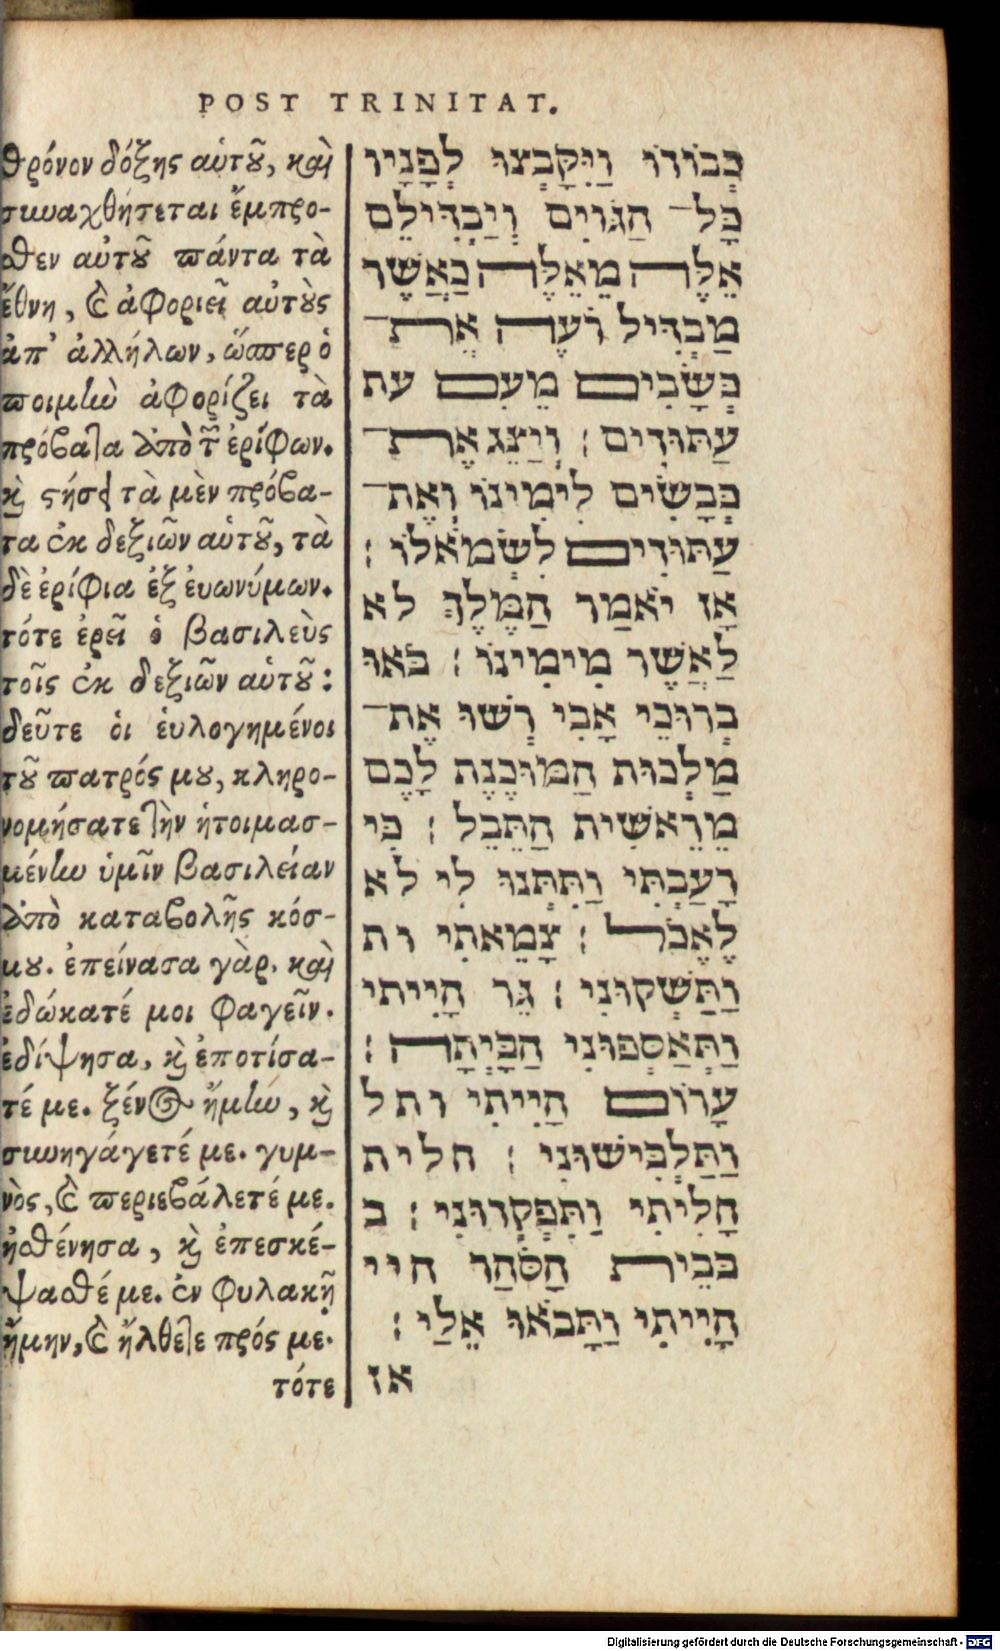 POST TRINITAT.
θρόνον δόξης αὑτοῦ, καὶ
συναχθήσεται ἔμπρο-
σθεν αὐτοῦ πάντα τὰ
ἔθνη, καὶ ἀφοριεῖ αὐτοὺς
ἀπ' ἀλλήλων, ὥσπερ ὁ
ποιμὴν ἀφορίζει τὰ
πρόβατα ἀπὸ τῶν ἐρίφων.
καὶ στήσει τὰ μὲν πρόβα-
τα ἐκ δεξιῶν αὑτοῦ, τὰ
δὲ ἐρίφια ἐξ ἐυωνύμων.
τότε ἐρεῖ ὁ βασιλεὺς
τοῖς ἐκ δεξιῶν αὑτοῦ:
δεῦτε ὁι ἐυλογημένοι
τοῦ πατρός μου, κληρο-
νομήσατε τὴν ἡτοιμασ-
μένην ὑμῖν βασιλείαν
ἀπὸ καταβολῆς κόσ-
μου. ἐπείνασα γὰρ, καὶ
ἐδώκατέ μοι φαγεῖν.
ἐδίψησα, καὶ ἐποτίσα-
τέ με. ξένος ἤμην, καὶ
συνηγάγετέ με. γυμ-
νὸς, καὶ περιεβάλετέ με.
ἠσθένησα, καὶ ἐπεσκέ-
ψασθέ με. ἐν φυλακῇ
ἤμην, καὶ ἤλθετε πρός με.
τότε
כְּבוֹדוֹ וַיִּקָּבְצוּ לְפָנָיו
כָּל־ הַגּוֹיִם וְיַבְדִּילֵם
אֵלֶּה מֵאֵלֶּה כַּאֲשֶׁר
מַבְדִּיל רֹעֶה אֶת־
כְּשָׂבִים מֵעִם עת
עַתּוּדִים : וְיַצֵּג אֶת־
כְּבָשִׂים לִימִינוֹ וְאֶת־
עַתּוּדִים לִשְׂמֹאלוֹ :
אָז יֹאמַר הַמֶּלֶךְ לא
לַאֲשֶׁר מִימִינוֹ : בֹּאוּ
בְרוּכֵי אָבִי רְשׁוּ אֶת־
מַלְכוּת הַמּוּכֶנֶת לָכֶם
מֵרֵאשִׁית הַתֵּבֵל : כִּי
רָעַבְתִּי וַתִּתְּנוּ לִי לא
לֶאֱכֹל : צָמֵאתִי ות
וַתַּשְׁקוּנִי : גֵּר הָיִיתִי
וַתַּאַסְפוּנִי הַבָּיְתָה :
עָרוֹם הָיִיתִי ותל
וַתַּלְבִּישׁוּנִי : חלית
חָלִיתִי וַתִּפְקְדוּנִי : ב
בְּבֵית הַסֹּהַר היי
הָיִיתִי וַתָּבֹאוּ אֵלַי :
אז
Digitalisierung gefördert durch die Deutsche Forschungsgemeinschaft - DFG